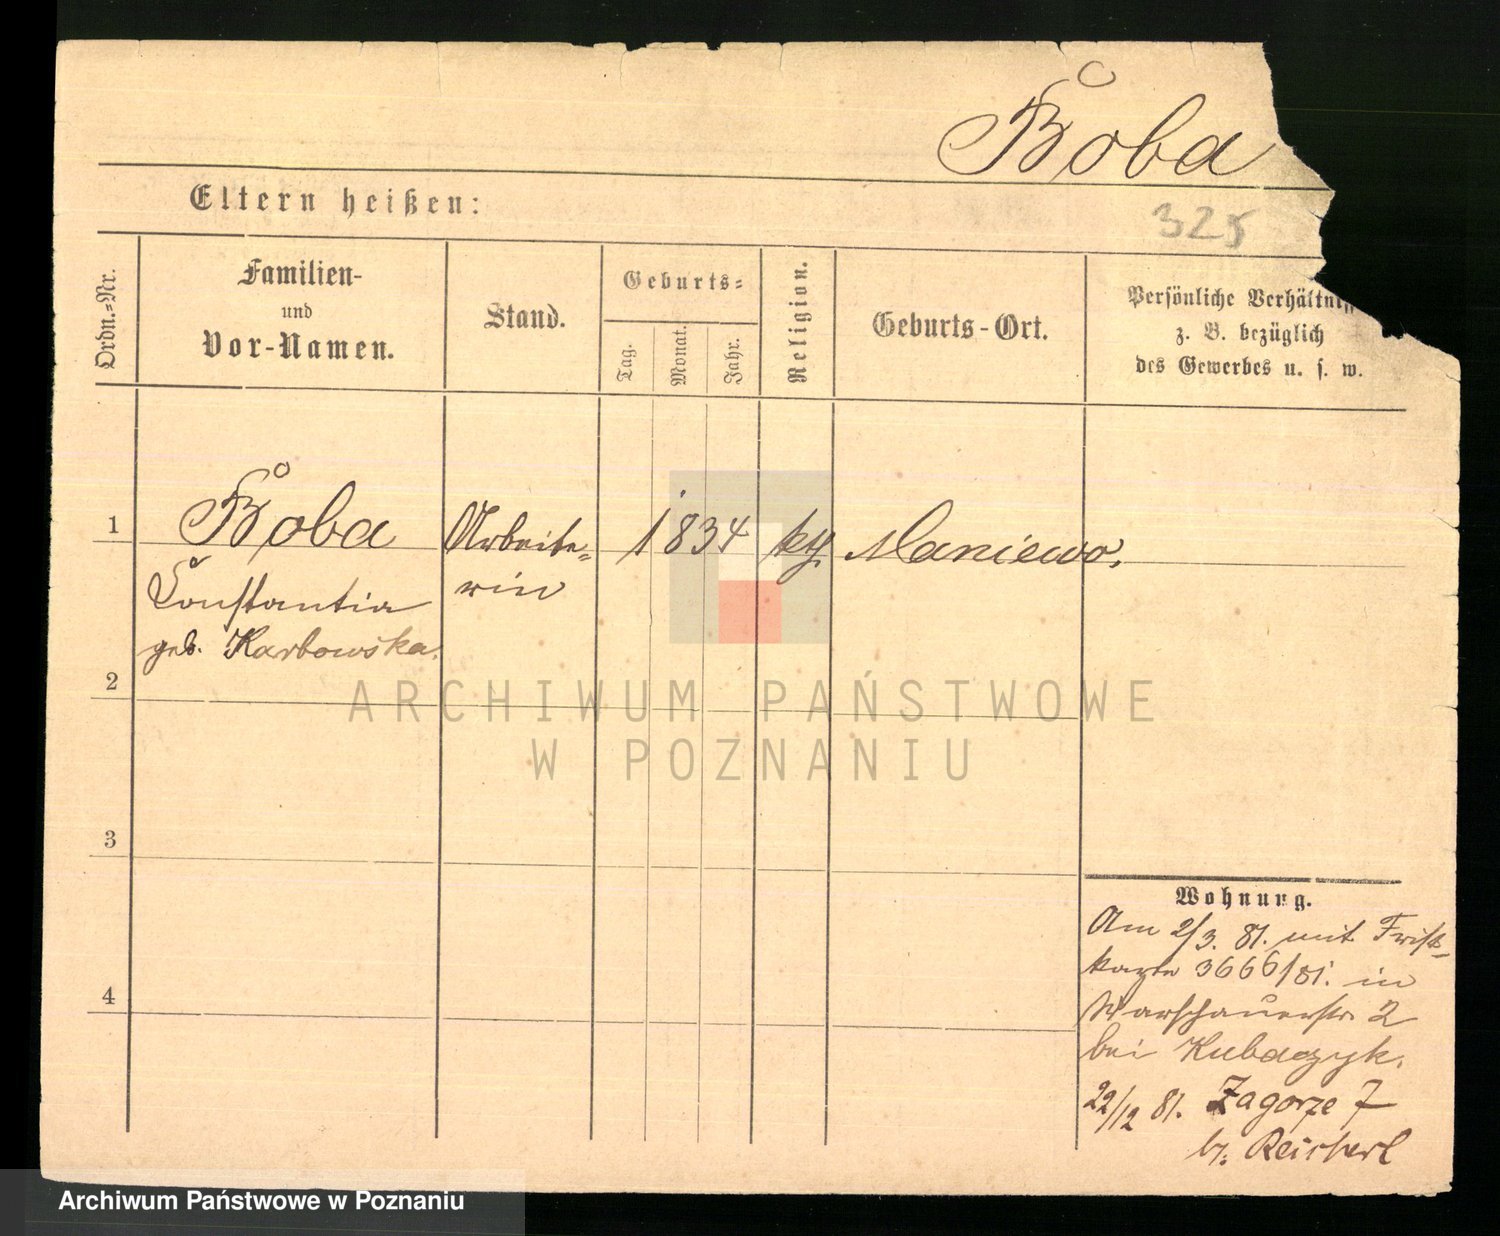 Boba
Eltern heißen:
325
Ordn.-Nr.
Familien-
und
Vor-Namen.
Stand.
Geburts-
Tag.
Monat.
Jahr.
Religion.
Geburts-Ort.
Persönliche Verhältniss
z. B. bezüglich
des Gewerbes u. s. w.
1
Boba
Constantia
geb. Karbowska.
Arbeite-
rin
1834
kth.
Maniewo.
2
3
4
Wohnung.
Am 2/3. 81. mit Frist-
karte 3666/81. in
Warschauerstr. 2
bei Kubaczyk.
22/12 81. Zagorze 7
b. Reichert
ARCHIWUM PAŃSTWOWE
W POZNANIU
Archiwum Państwowe w Poznaniu